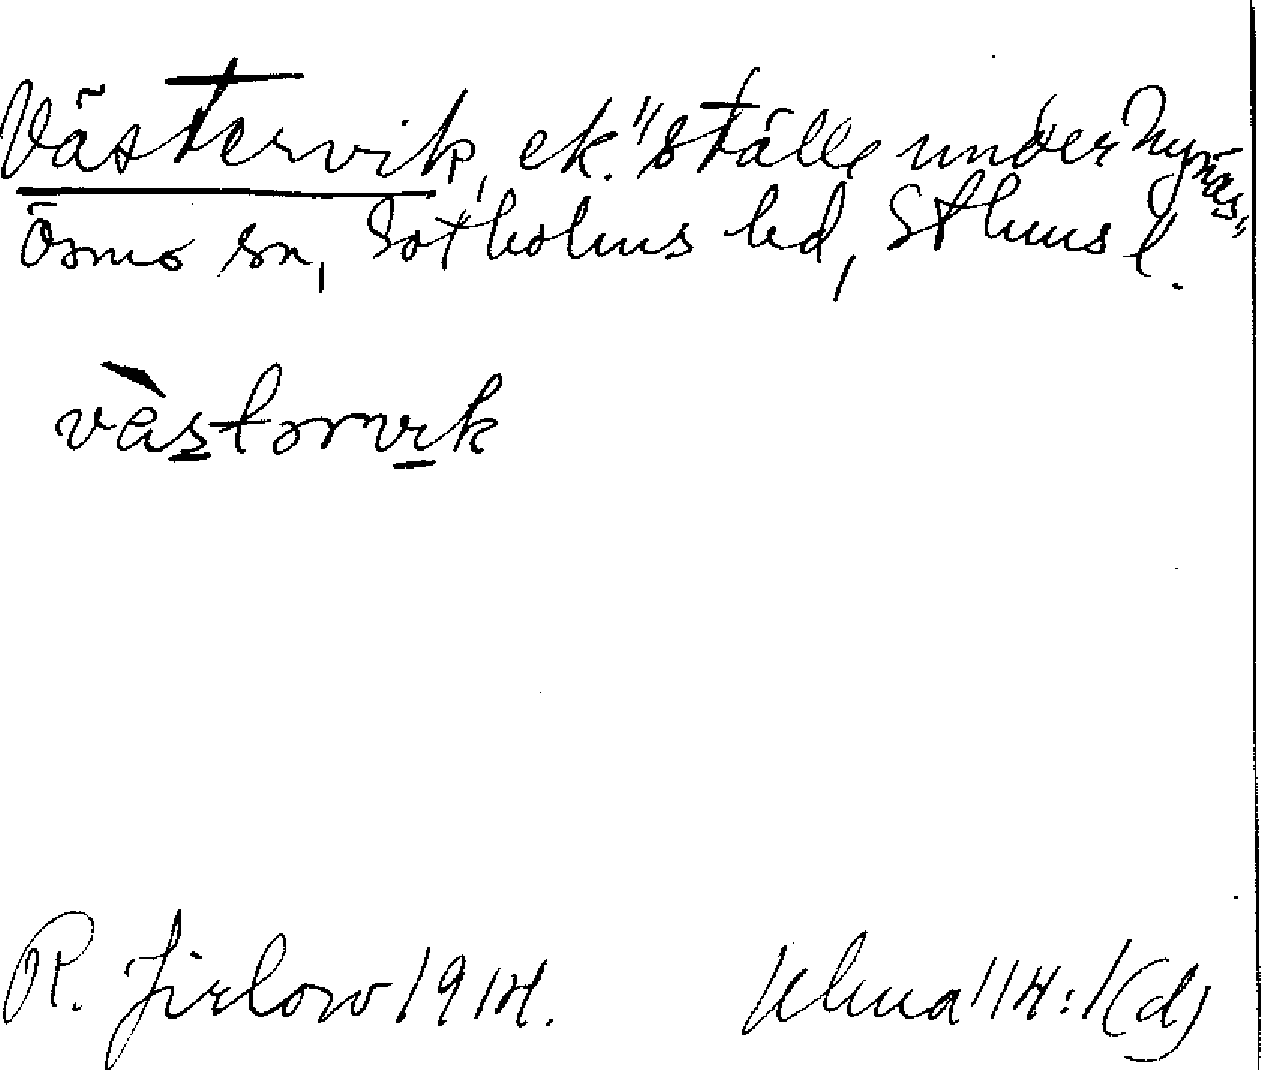 Västervik, ek. "ställe under Nynäs"
Ösmo sn, Sotholms hd, Sthms l.
vàstərvik
R. Jirlow 1914. Ulma 114:1(d)